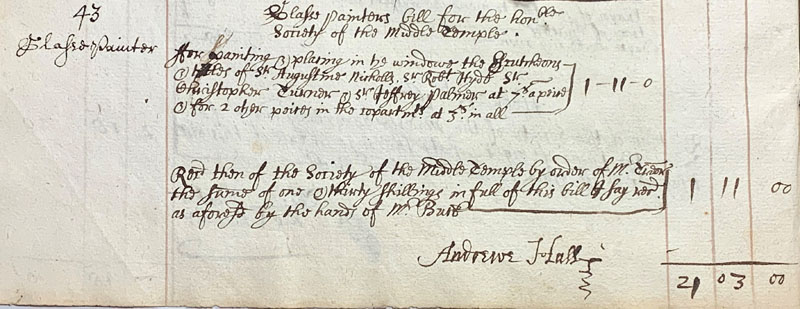 43
Glasse Painter
Glasse Painters bill for the honble
Society of the Middle Temple.
ffor painting & placing in ye windowe the Scutcheons
& titles of Sr Augustine Nicholls, Sr Robt Hyde Sr
Christopher Turner & Sr Jeffrey Palmer at 7s apeice
& for 2 other peices in the copartmts at in all
1-11-0
Recd then of the Society of the Middle Temple by order of Mr
the sume of one & thirty shillings in full of this bill I say recd
as aforesd by the hands of Mr
1 11 00
Andrewe Hall
21 03 00